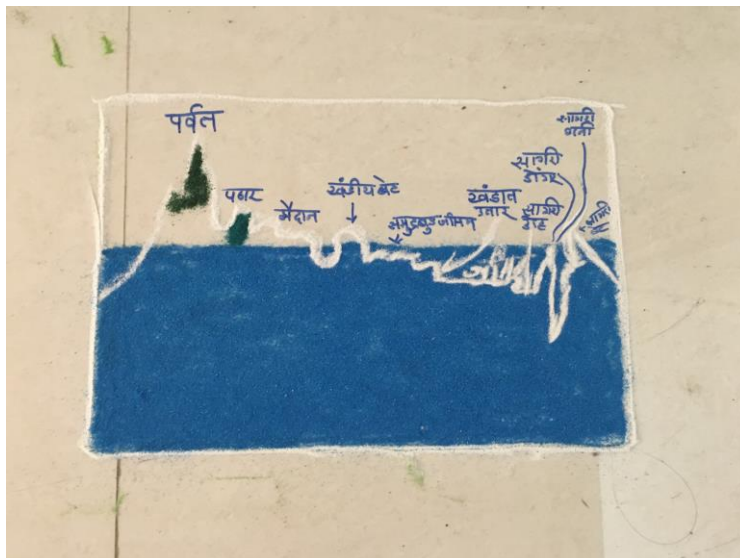 पर्वत
पठार
मैदान
खंडीय बेट
समुद्रबुड जमिन
खंडान्त
उतार
सागरी
डोंगर
सागरी